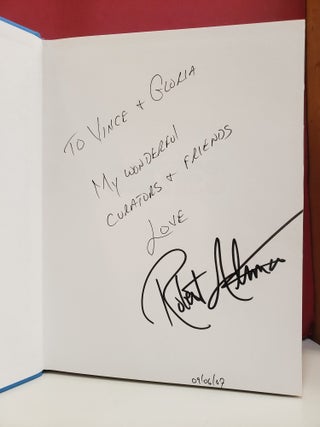 To Vince & Gloria
My wonderful
curators & friends
Love
Robert Altman
09/06/07